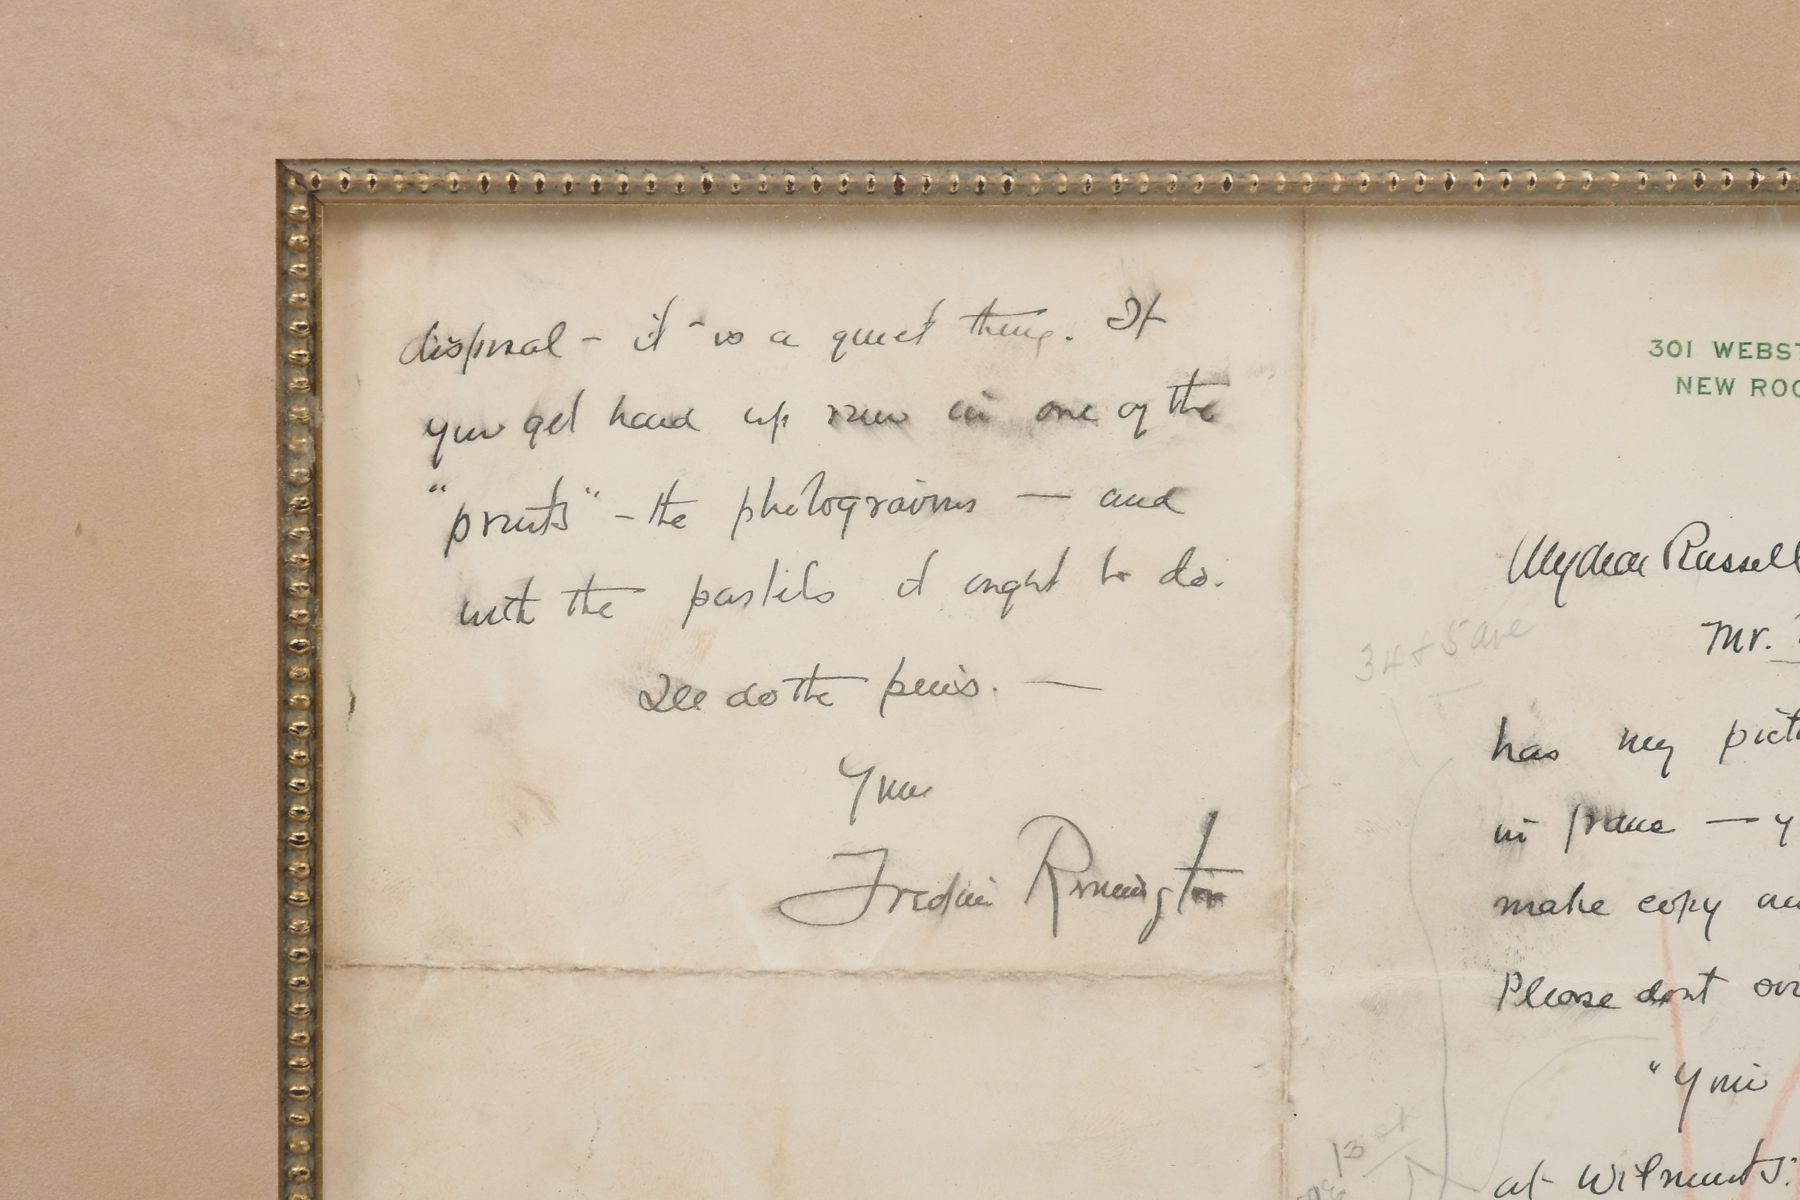 disposal - it is a quiet thing. If
you get hard up run in one of the
"prints" - the photogravures — and
with the pastels it ought to do.
I'll do the pens. —
Yours
Frederic Remington
301 WEBST
NEW ROC
My dear Russell
34 + 5 ave
Mr.
has my pict
in frame — y
make copy an
Please dont
"Your
13 st
at